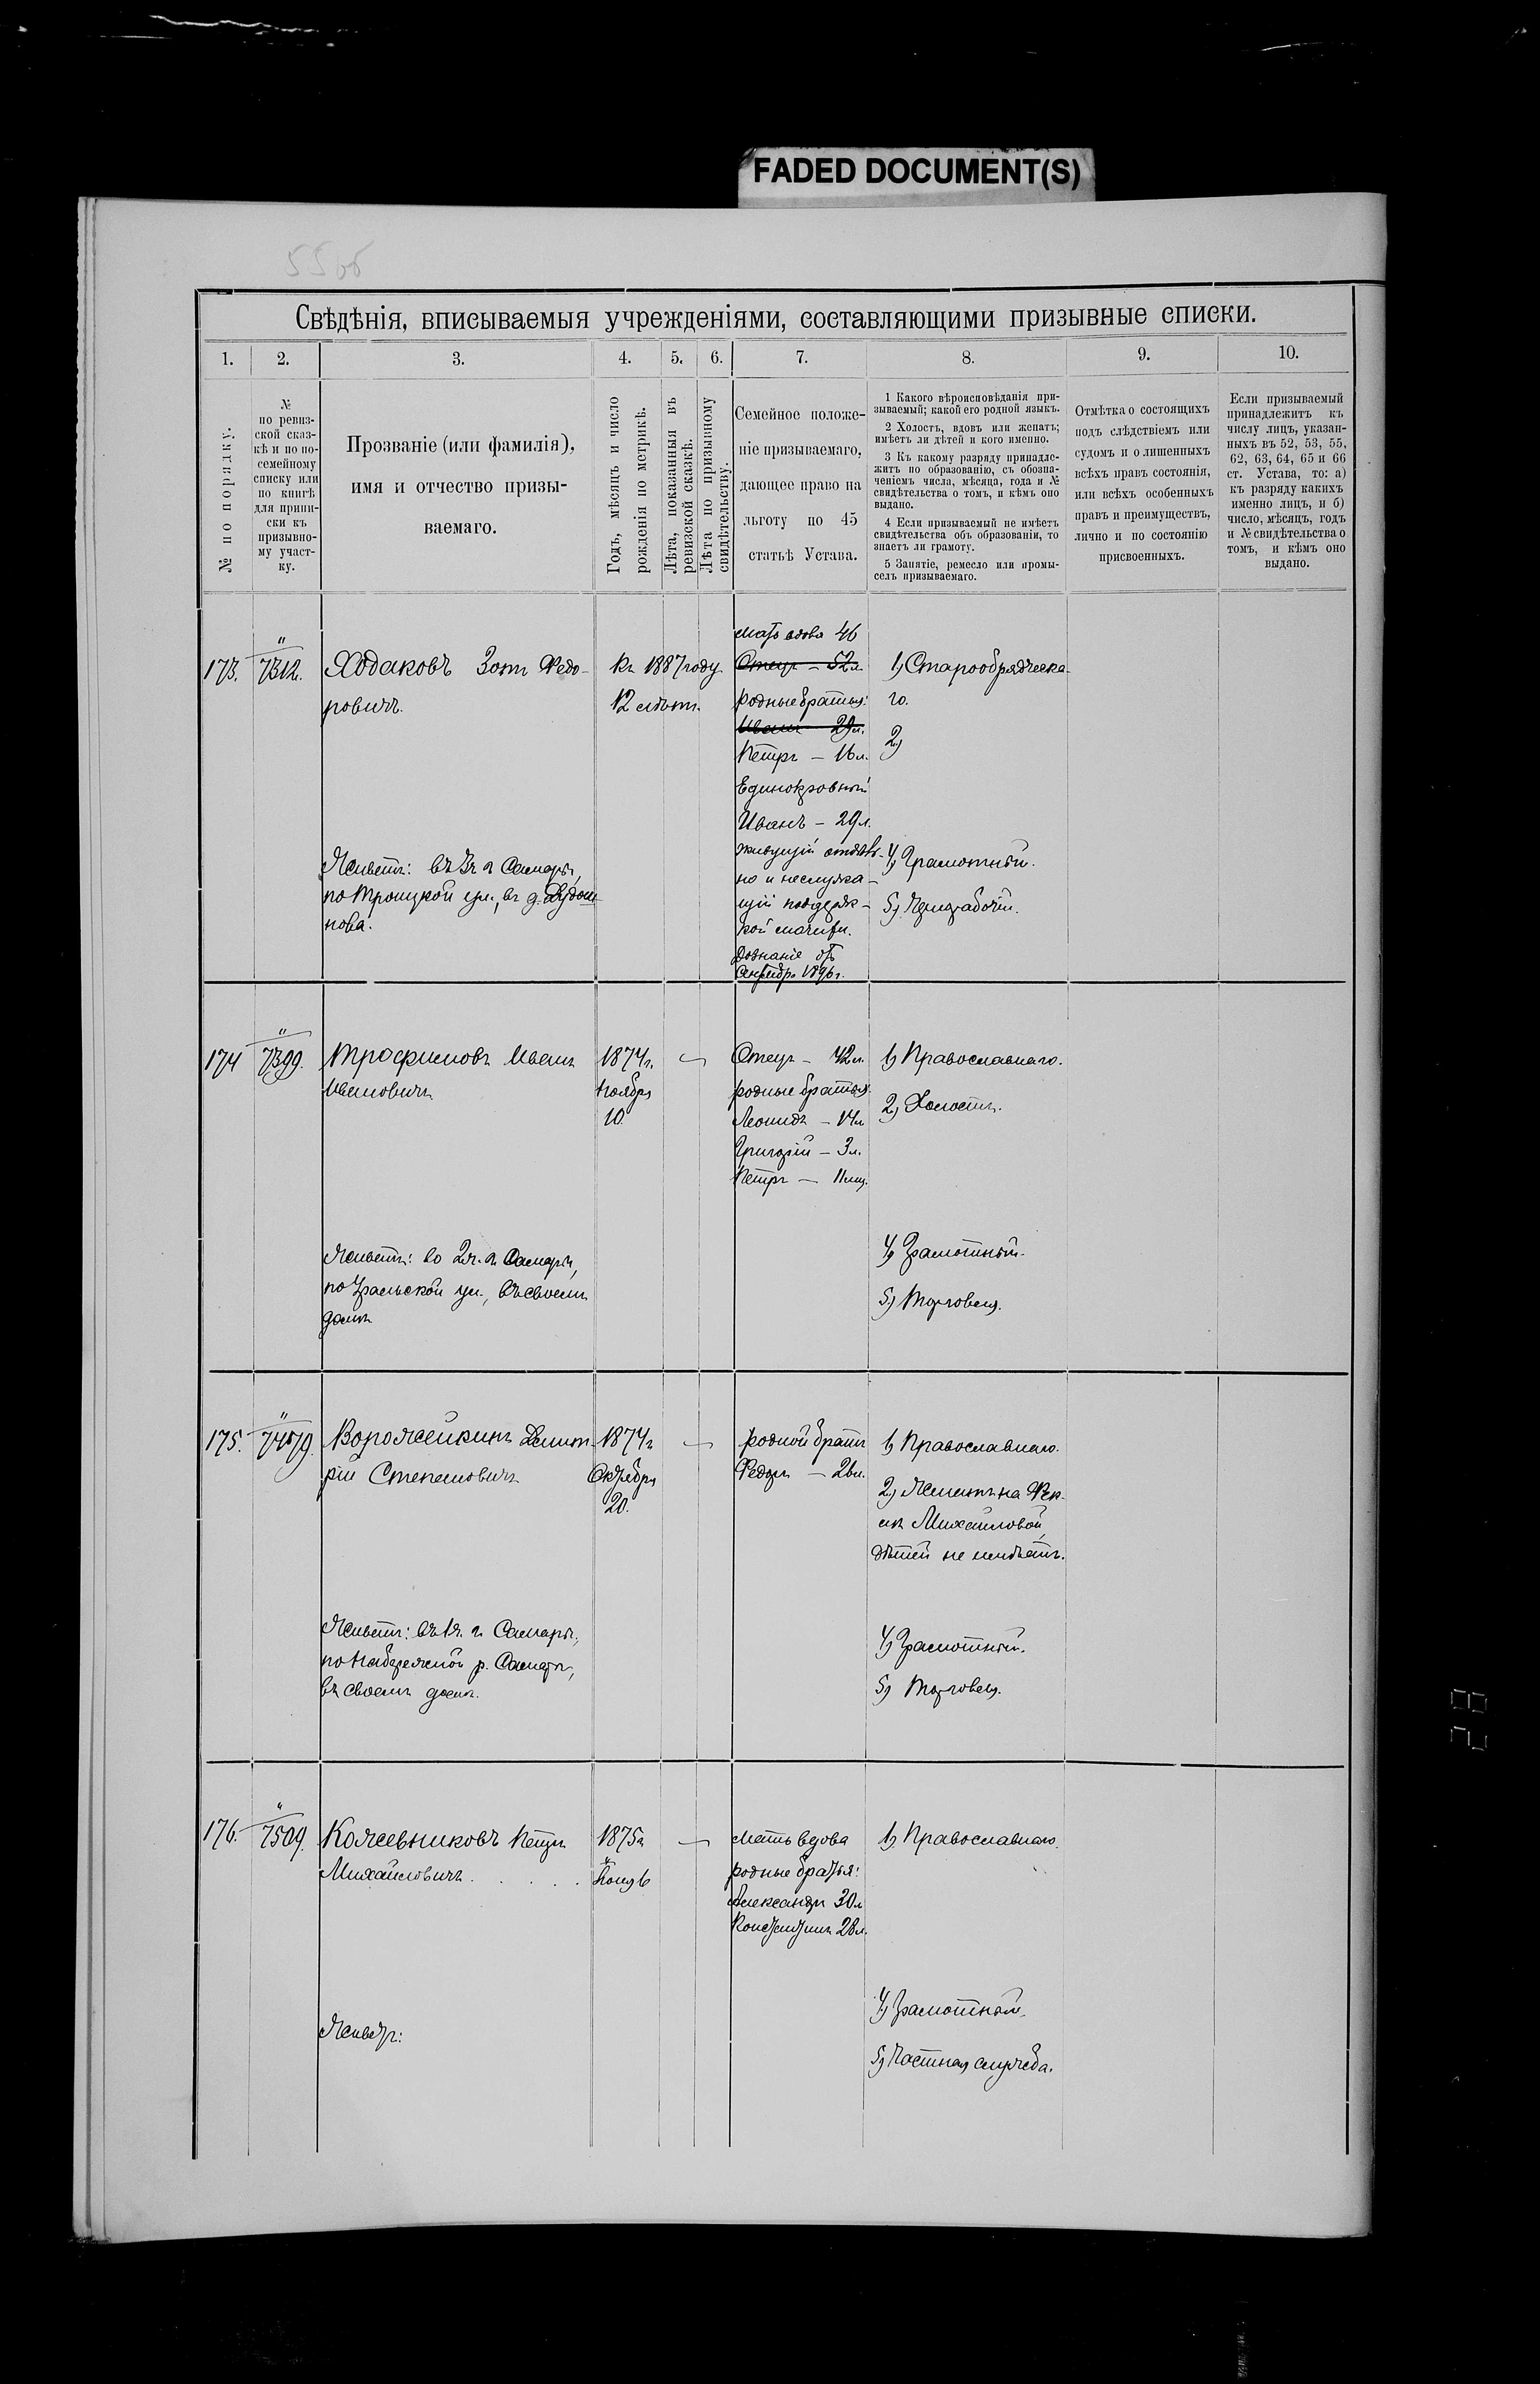 FADED DOCUMENT(S)
55об
Свѣдѣнія, вписываемыя учрежденіями, составляющими призывные списки.
1. 2. 3. 4. 5. 6. 7. 8. 9. 10.
№ по порядку.
№
по ревиз-
ской сказ-
кѣ и по по-
семейному
списку или
по книгѣ
для припи-
ски къ
призывно-
му участ-
ку.
Прозваніе (или фамилія),
имя и отчество призы-
ваемаго.
Годъ, мѣсяцъ и число
рожденія по метрикѣ.
Лѣта, показанныя въ
ревизской сказкѣ.
Лѣта по призывному
свидѣтельству.
Семейное положе-
ніе призываемаго,
дающее право на
льготу по 45
статьѣ Устава.
1 Какого вѣроисповѣданія при-
зываемый; какой его родной языкъ.
2 Холостъ, вдовъ или женатъ;
имѣетъ ли дѣтей и кого именно.
3 Къ какому разряду принадле-
житъ по образованію, съ обозна-
ченіемъ числа, мѣсяца, года и №
свидѣтельства о томъ, и кѣмъ оно
выдано.
4 Если призываемый не имѣетъ
свидѣтельства объ образованіи, то
знаетъ ли грамоту.
5 Занятіе, ремесло или промы-
селъ призываемаго.
Отмѣтка о состоящихъ
подъ слѣдствіемъ или
судомъ и о лишенныхъ
всѣхъ правъ состоянія,
или всѣхъ особенныхъ
правъ и преимуществъ,
лично и по состоянію
присвоенныхъ.
Если призываемый
принадлежитъ къ
числу лицъ, указан-
ныхъ въ 52, 53, 55,
62, 63, 64, 65 и 66
ст. Устава, то: а)
къ разряду какихъ
именно лицъ, и б)
число, мѣсяцъ, годъ
и № свидѣтельства о
томъ, и кѣмъ оно
выдано.
173.
"
7312.
Ходаковъ Зотъ Ѳедо-
ровичъ.
Живетъ: въ 3ч. г. Самары,
по Троицкой ул., въ д.
нова.
Къ 1887 году
12 лѣтъ.
Мать вдова 46
Отецъ – 52л.
Родные братья:
Иванъ 29л.
Петръ – 16л.
Единокровный
Иванъ – 29л.
живущій отдѣль-
но и неслужа-
щій поддерж-
кой мачихи.
Дознаніе отъ
Сентября 1896г.
1) Старообрядческа-
го.
2)
4) Грамотный.
5) Чернорабочій.
174
"
7399.
Трофимовъ Иванъ
Ивановичъ
Живетъ: во 2ч. г. Самары,
по Уральской ул., въ своемъ
домѣ
1874г.
Ноября
10.
—
Отецъ – 42л.
родные братья:
Леонидъ – 14л
Григорій – 3л.
Петръ – 11мц.
1) Православнаго.
2) Холостъ.
4) Грамотный.
5) Торговля.
175.
"
7479.
Ворожейкинъ Димит-
рій Степановичъ
Живетъ: въ 1ч. г. Самары,
по Набережной р. Самары,
въ своемъ домѣ.
1874г
Октября
20.
—
родной братъ
Ѳедоръ – 26л.
1) Православнаго.
2) Женатъ на Ѳек-
лѣ Михайловой,
дѣтей не имѣетъ.
4) Грамотный.
5) Торговля.
176.
"
7509.
Кожевниковъ Петръ
Михайловичъ . . . . .
Живетъ:
1875г
—
Мать вдова
родные братья:
Александръ 30л
Константинъ 28л.
1) Православнаго.
4) Грамотный.
5) Частная служба.
28